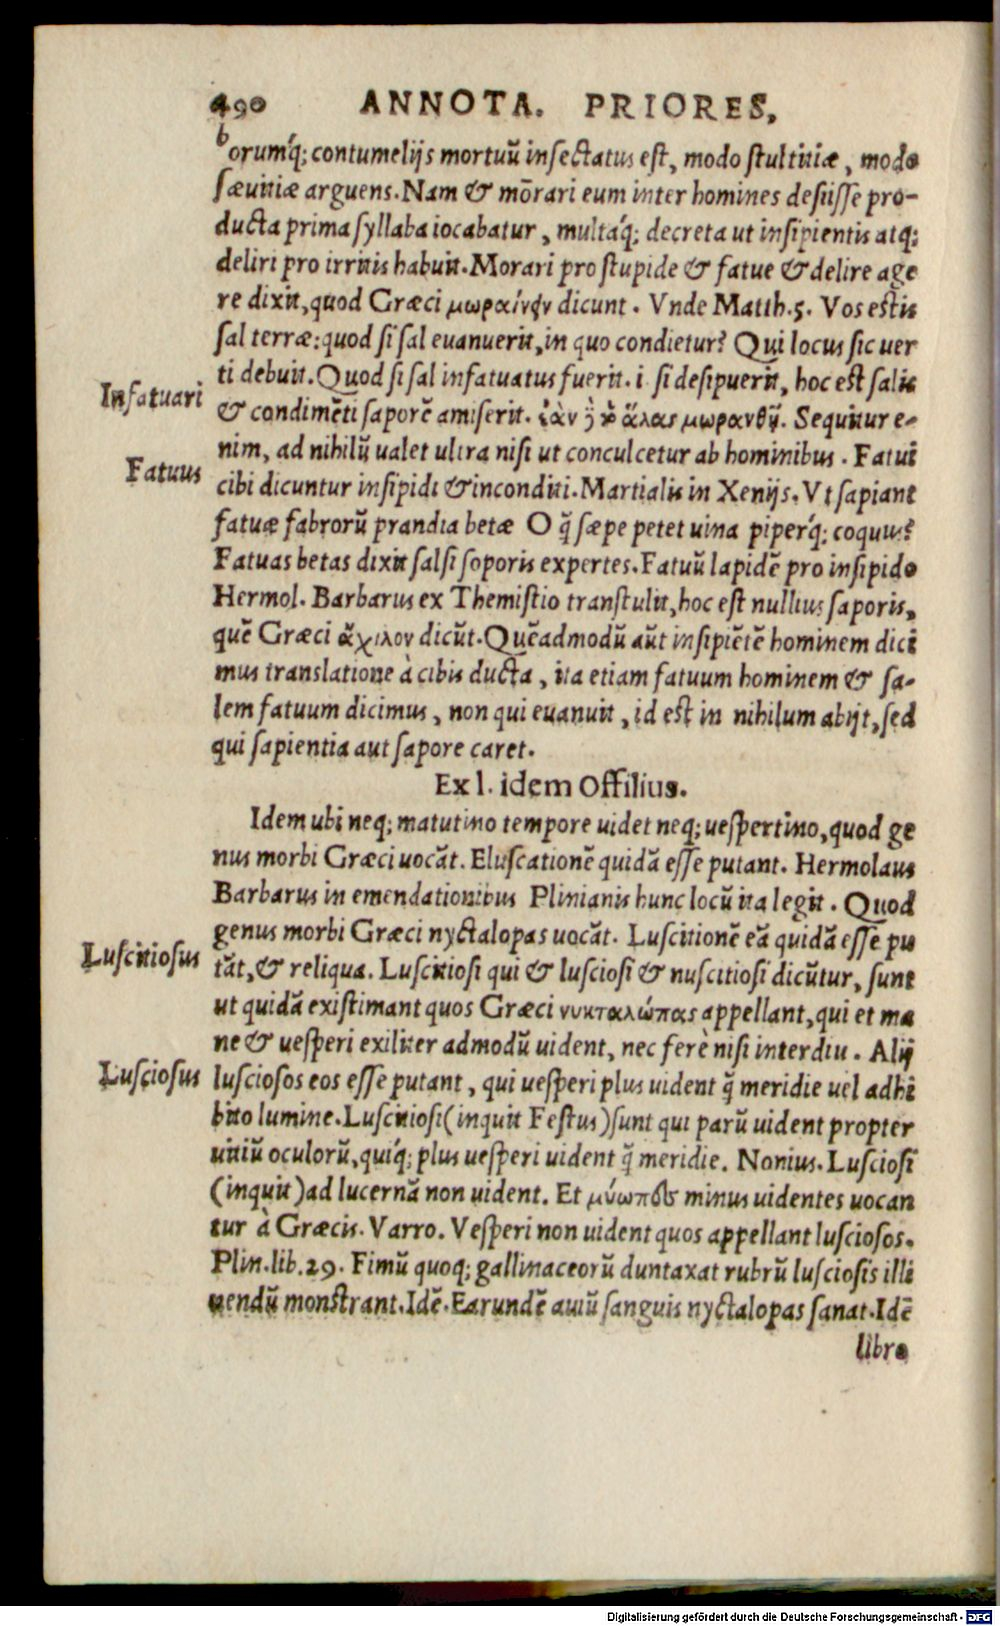 490 ANNOTA. PRIORES,
borumq́; contumelijs mortuũ insectatus est, modo stultitiæ, modo
sæuitiæ arguens. Nam & mōrari eum inter homines desijsse pro-
ducta prima syllaba iocabatur, multaq́; decreta ut insipientis atq;
deliri pro irritis habuit. Morari pro stupide & fatue & delire age
re dixit, quod Græci μωραίνειν dicunt. Vnde Matth. 5. Vos estis
sal terræ: quod si sal euanuerit, in quo condietur? Qui locus sic uer
ti debuit. Quod si sal infatuatus fuerit. i. si desipuerit, hoc est salis
Infatuari
& condimẽti saporẽ amiserit. ἐὰν ἢ τὸ ἅλας μωρανθῇ. Sequitur e-
nim, ad nihilũ ualet ultra nisi ut conculcetur ab hominibus. Fatui
Fatuus
cibi dicuntur insipidi & inconditi. Martialis in Xenijs. Vt sapiant
fatuæ fabrorũ prandia betæ O q̃ sæpe petet uina piperq́; coquus?
Fatuas betas dixit salsi soporis expertes. Fatuũ lapidẽ pro insipido
Hermol. Barbarus ex Themistio transtulit, hoc est nullius saporis,
quẽ Græci ἄχιλον dicũt. Quẽadmodũ aũt insipiẽtẽ hominem dici
mus translatione à cibis ducta, ita etiam fatuum hominem & sa-
lem fatuum dicimus, non qui euanuit, id est in nihilum abijt, sed
qui sapientia aut sapore caret.
Ex l. idem Offilius.
Idem ubi neq; matutino tempore uidet neq; uespertino, quod ge
nus morbi Græci uocãt. Eluscationẽ quidã esse putant. Hermolaus
Barbarus in emendationibus Plinianis hunc locũ ita legit. Quod
genus morbi Græci nyctalopas uocãt. Luscitionẽ eã quidã esse pu
Luscitiosus
tãt, & reliqua. Luscitiosi qui & lusciosi & nuscitiosi dicũtur, sunt
ut quidã existimant quos Græci νυκταλώπας appellant, qui et ma
ne & uesperi exiliter admodũ uident, nec ferè nisi interdiu. Alij
Lusciosus
lusciosos eos esse putant, qui uesperi plus uident q̃ meridie uel adhi
bito lumine. Luscitiosi (inquit Festus) sunt qui parũ uident propter
uitiũ oculorũ, quiq́; plus uesperi uident q̃ meridie. Nonius. Lusciosi
(inquit) ad lucernã non uident. Et μύωπες minus uidentes uocan
tur à Græcis. Varro. Vesperi non uident quos appellant lusciosos.
Plin. lib. 29. Fimũ quoq; gallinaceorũ duntaxat rubrũ lusciosis illi
nendũ monstrant. Idẽ. Earundẽ auiũ sanguis nyctalopas sanat. Idẽ
libro
Digitalisierung gefördert durch die Deutsche Forschungsgemeinschaft - DFG